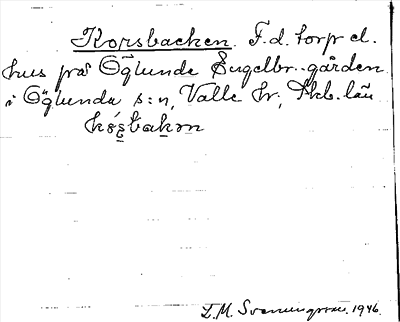 Korsbacken. F.d. torp el.
hus på Öglunda Engelbr.-gården
i Öglunda s:n, Valle hr, Skb. län
kɷ́s̱bakən
L.M. Svenungsson. 1946.